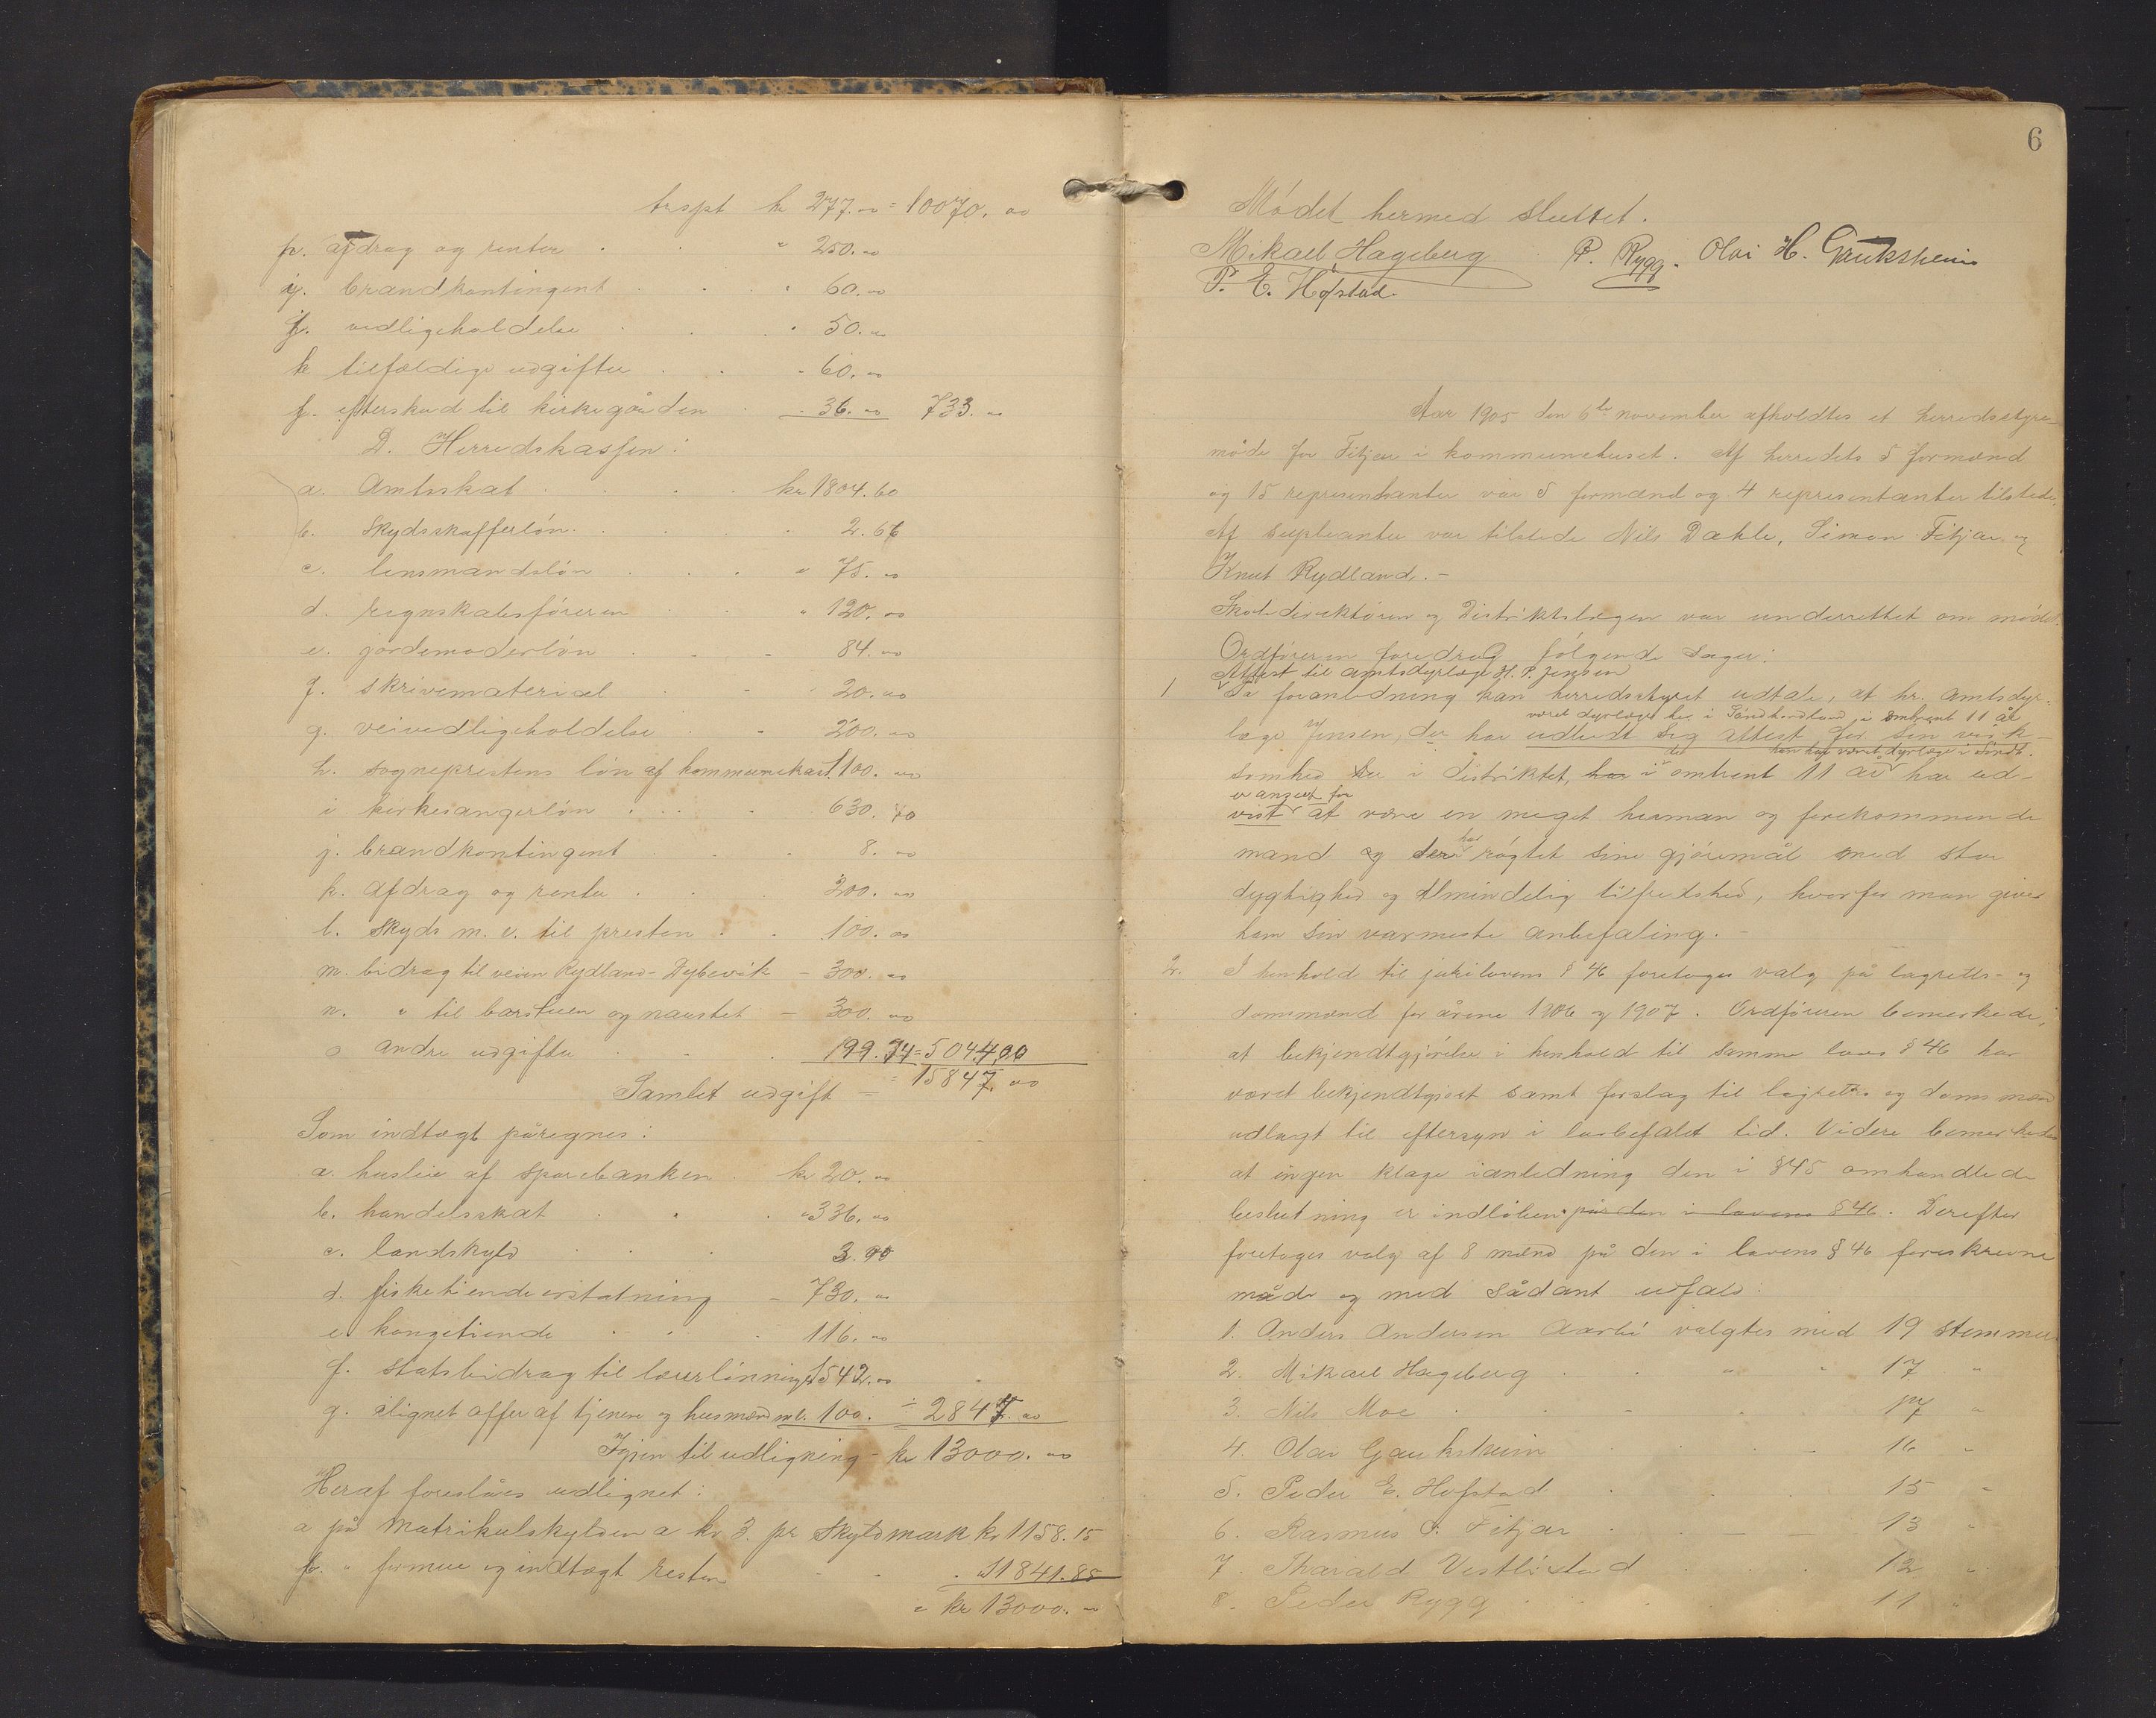 trspt kr 277.00 = 10070.00
h. afdrag og renter . . " 250.00
i. brandkontingent . . " 60.00
j. vedligeholdelse . . " 50.00
k tilfældige udgifter . . - 60.00
f. efterskud til kirkegården . . 36.00 733.00
D. Herredskassen:
a. Amtsskat . . . . kr 1804.60
b. Skydsskafferløn . . . 2.66
c. lensmandsløn . . . " 75.00
d. regnskabsføreren . . " 120.00
e. jordemoderløn . . - 84.00
f. skrivemateriael . . 20.00
g. veivedligeholdelse . . 200.00
h. sogneprestens løn af kommunekas. 1100.00
i kirkesangerløn . . . 630.40
j. brandkontingent . . . 8.00
k. afdrag og renter . . . 200.00
l. Skyds m. v. til presten . . 100.00
m. bidrag til veien Rydland - Dybevik - 300.00
n. " til barstuen og naustet - 300.00
o andre udgifter . . . 199.34 = 5044.00
Samlet udgift - = 15847.00
Som indtægt påregnes:
a. husleie af sparebanken . kr 20.00
b. handelsskat . . . " 336.00
c. landskyld . . . 3.00
d. fisketiendeerstatning - 730.00
e. kongetiende . . . 116.00
f. statsbidrag til lærerlønninger 1542.00
g. alignet offer af tjenere og husmænd m. v. 100. ÷ 2847.00
Igjen til udligning - kr 13000.00
Heraf foreslåes udlignet:
a på Matrikulskylden a kr 3. pr skyldmark kr 1158.15
b. " formue og indtægt resten - - . 11841.85
= kr 13000.00
6
Mødet hermed sluttet.
Mikael Hageberg P. Rygg. Olai H. Gaukstheim
P. E. Hofstad.
Aar 1905 den 6te november afholdtes et herredsstyre-
møde for Fitjar i kommunehuset. Af herredets 5 formænd
og 15 representanter var 5 formænd og 4 representanter tilstede.
Af supleanter var tilstede Nils Dahle, Simon Fitjar, og
Knut Rydland. -
Skoledirektøren og Distriktslægen var underrettet om mødet.
Ordføreren foredrog følgende sager:
Attest til amtsdyrlæge H. P. Jensen
1 På foranledning kan herredsstyret udtale, at hr. amtsdyr-
været dyrlæge her i Søndhordland i omtrent 11 år
læge Jensen, der har udbedt sig attest for sin virk-
han har været dyrlæge i
somhed her i distriktet, har i omtrent 11 år har ud-
er anseet for
vist at være en meget human og forekommende
har
mand og der røgtet sine gjøremål med stor
dygtighed og almindelig tilfredshed, hvorfor man giver
ham sin varmeste anbefaling. -
2. I henhold til jurilovens § 46 foretoges valg på lagrette- og
domsmænd for årene 1906 og 1907. Ordføreren bemerkede,
at bekjendtgjørelse i henhold til samme lovs § 46 har
været bekjendtgjort samt forslag til lagrette og domsmænd
udlagt til eftersyn i lovbefalet tid. Videre bemerkedes
at ingen klage ianledning den i § 45 omhandlede
beslutning er indløben på den i lovens § 46. Derefter
foretoges valg af 8 mænd på den i lovens § 46 foreskrevne
måde og med sådant udfald:
1. Anders Andersen Aarbø valgtes med 19 stemmer
2. Mikael Hageberg . . " " 17 "
3. Nils Moe . . - . 17 "
4. Olai Gaukstheim . . . - 16 "
5. Peder E. Hofstad . . . 15 "
6. Rasmus O. Fitjar . . - 13 "
7. Tharald Vestbøstad . . . 12 "
8. Peder Rygg . . . . 11 "